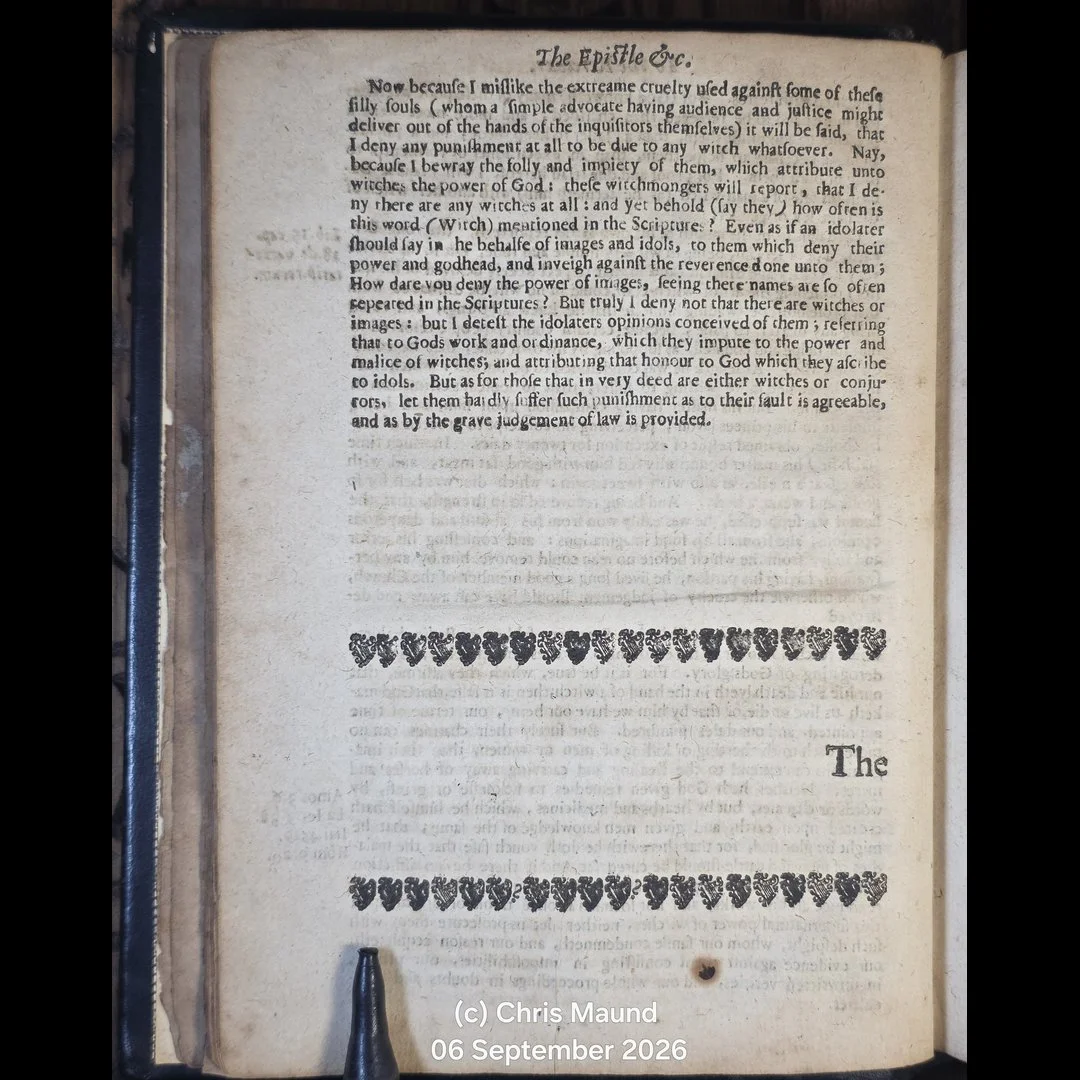 The Epiſtle &c.
Now becauſe I miſlike the extreame cruelty uſed againſt ſome of theſe
ſilly ſouls (whom a ſimple advocate having audience and juſtice might
deliver out of the hands of the inquiſitors themſelves) it will be ſaid, that
I deny any puniſhment at all to be due to any witch whatſoever. Nay,
becauſe I bewray the folly and impiety of them, which attribute unto
witches the power of God : theſe witchmongers will report, that I de-
ny there are any witches at all : and yet behold (ſay they) how often is
this word (Witch) mentioned in the Scriptures ? Even as if an idolater
ſhould ſay in he behalfe of images and idols, to them which deny their
power and godhead, and inveigh againſt the reverence done unto them ;
How dare you deny the power of images, ſeeing there names are ſo often
repeated in the Scriptures ? But truly I deny not that there are witches or
images : but I deteſt the idolaters opinions conceived of them ; referring
that to Gods work and ordinance, which they impute to the power and
malice of witches; and attributing that honour to God which they aſcribe
to idols. But as for thoſe that in very deed are either witches or conju-
rors, let them hardly ſuffer ſuch puniſhment as to their fault is agreeable,
and as by the grave judgement of law is provided.
The
(c) Chris Maund
06 September 2026